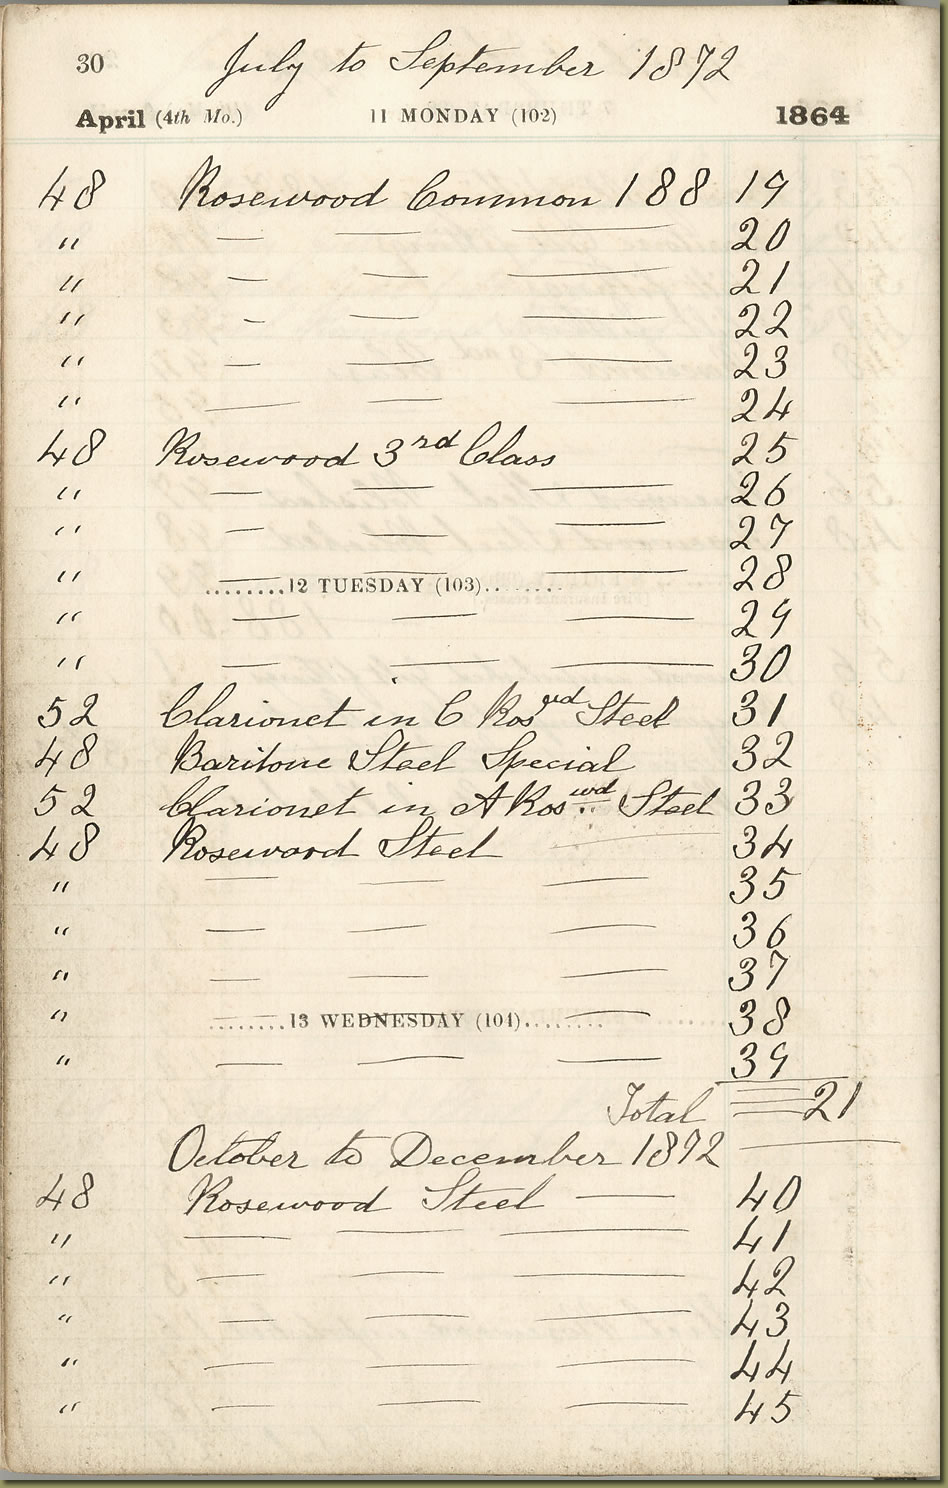 30 July to September 1872
April (4th Mo.) 11 MONDAY (102) 1864
48 Rosewood Common 188 19
" — — — 20
" — — — 21
" — — — 22
" — — — 23
" — — — 24
48 Rosewood 3rd Class 25
" — — — 26
" — — — 27
" — — — 28
........12 TUESDAY (103)........
" — — — 29
" — — — 30
52 Clarionet in C Roswd Steel 31
48 Baritone Steel Special 32
52 Clarionet in A Roswd Steel 33
48 Rosewood Steel 34
" — — — 35
" — — — 36
" — — — 37
" — — — 38
........13 WEDNESDAY (104)........
" — — — 39
Total 21
October to December 1872
48 Rosewood Steel — 40
" — — — 41
" — — — 42
" — — — 43
" — — — 44
" — — — 45